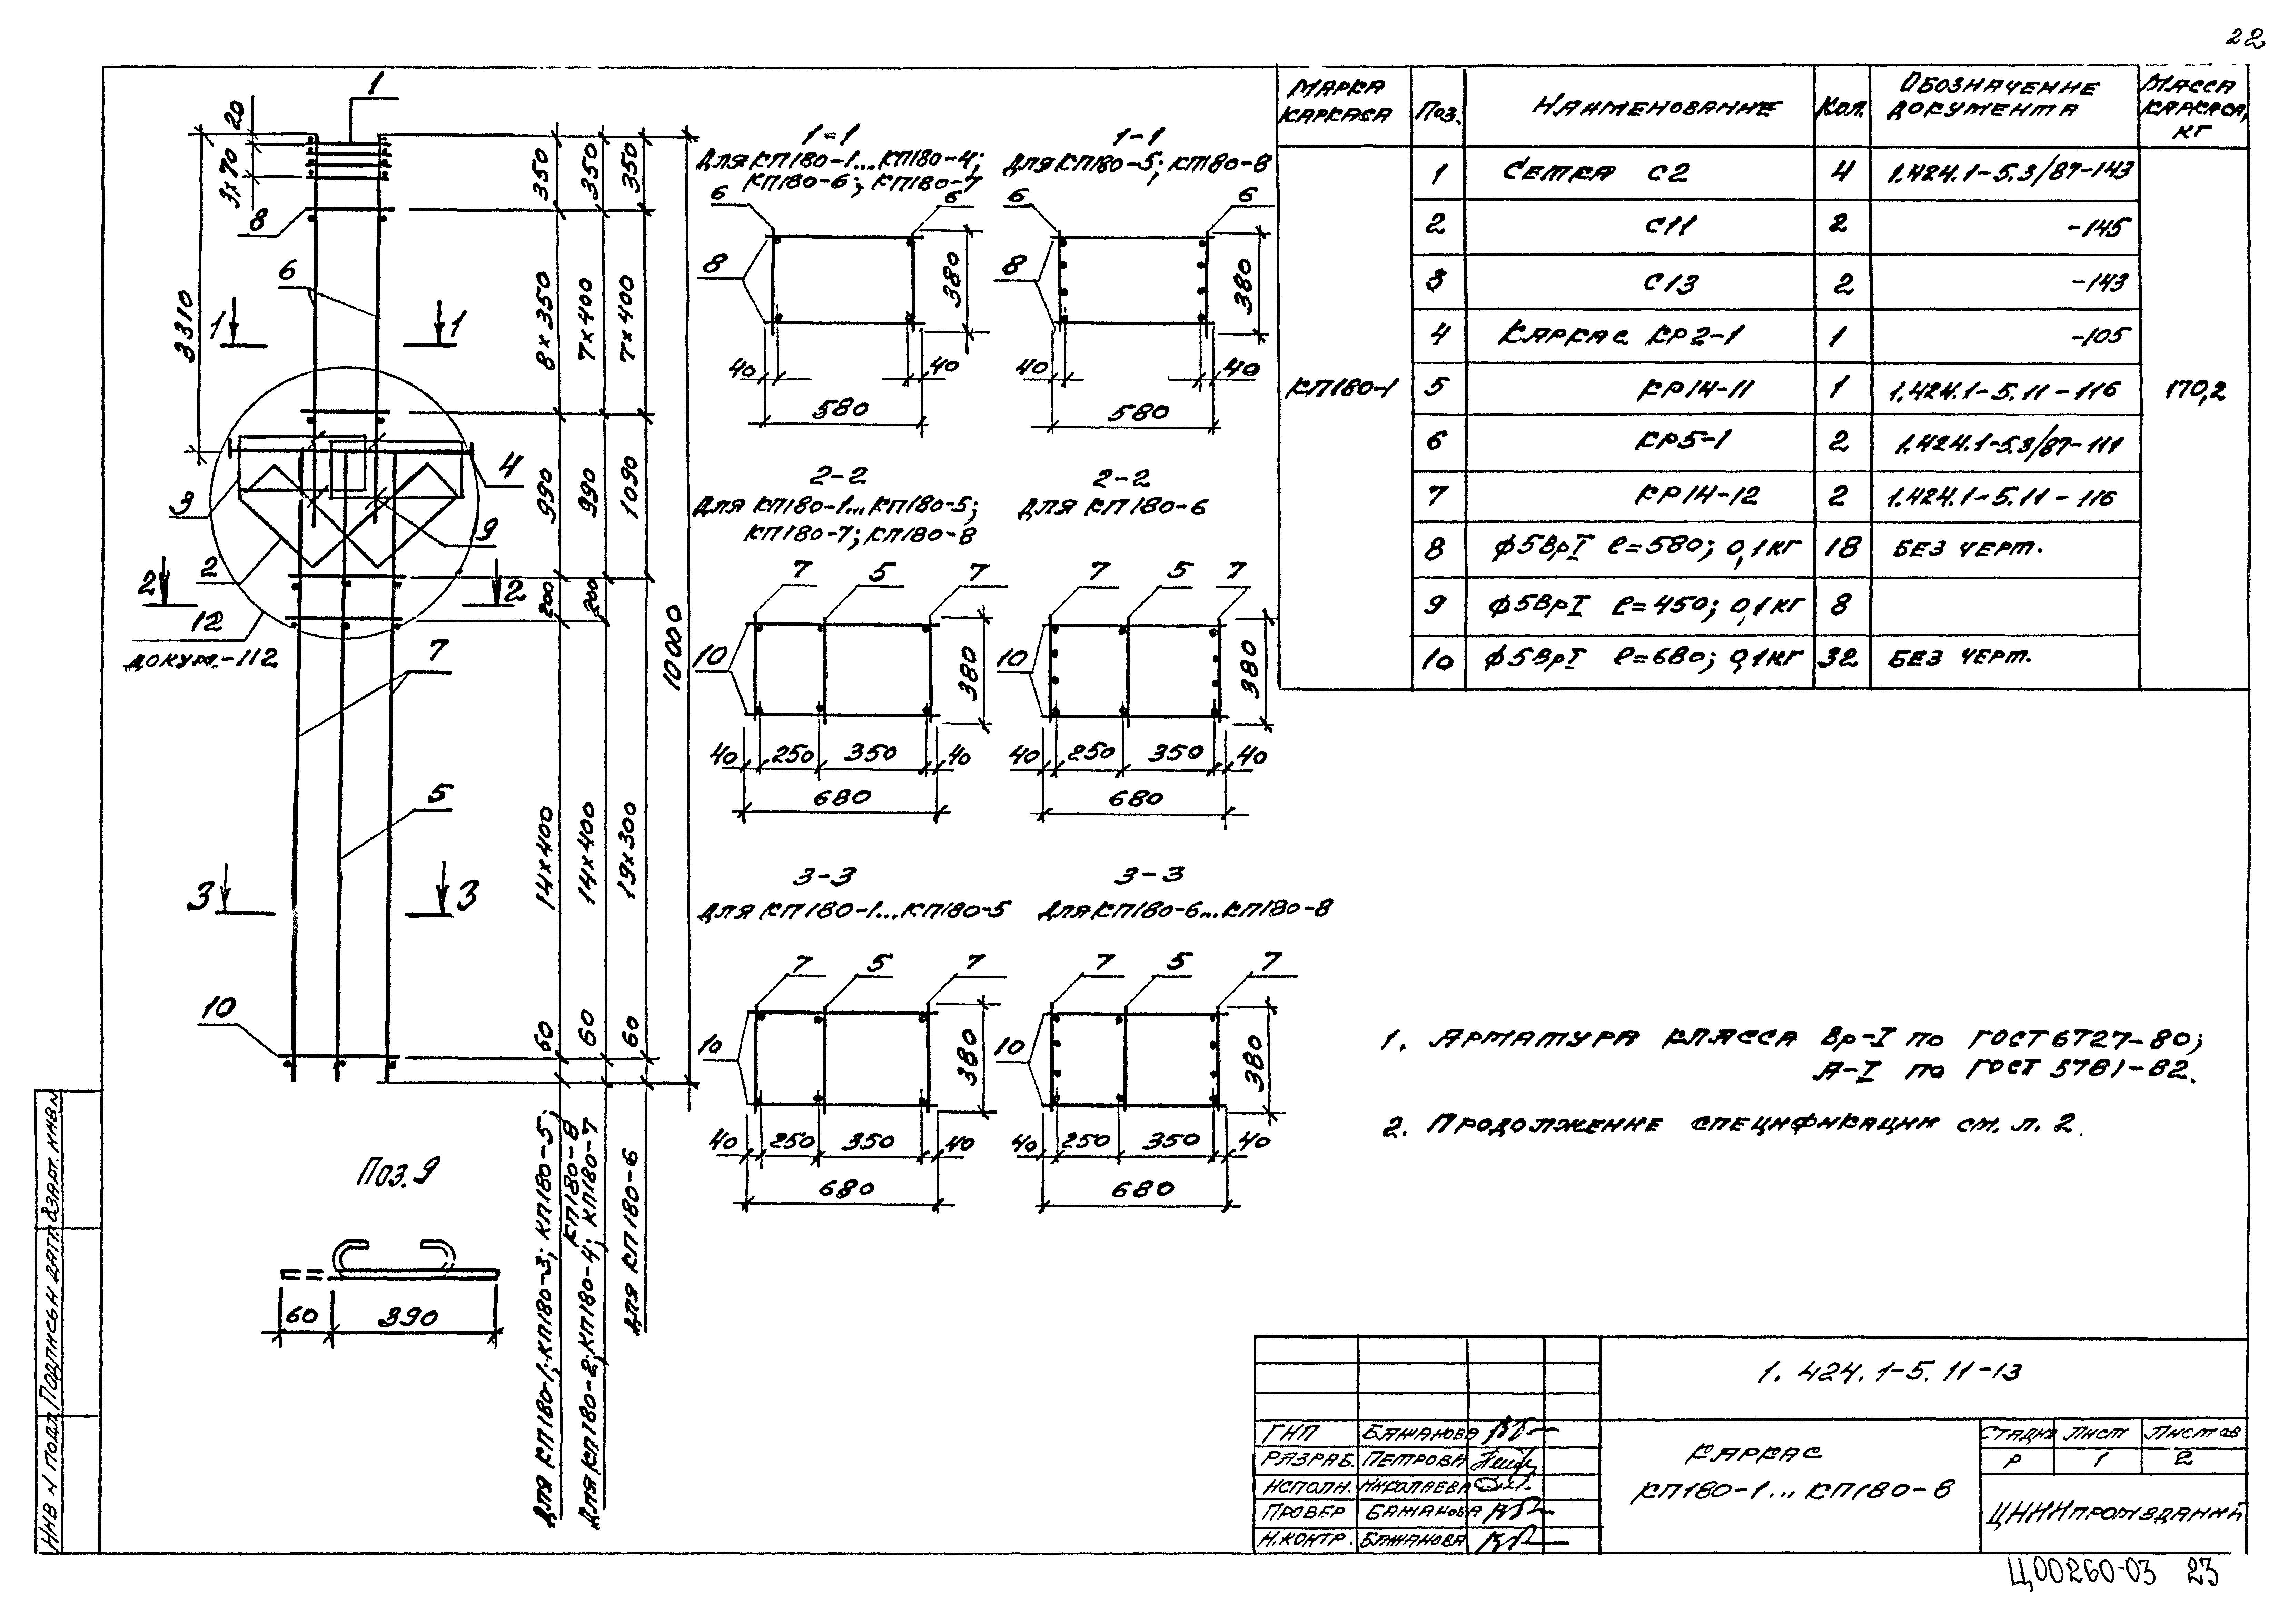 22
МАРКА КАРКАСА
ПОЗ.
НАИМЕНОВАНИЕ
КОЛ.
ОБОЗНАЧЕНИЕ ДОКУМЕНТА
МАССА КАРКАСА, КГ
КП180-1
170,2
1 СЕТКА С2 4 1.424.1-5.3/87-143
2 С11 2 -145
3 С13 2 -143
4 КАРКАС КР2-1 1 -105
5 КР14-11 1 1.424.1-5.11-116
6 КР5-1 2 1.424.1-5.3/87-111
7 КР14-12 2 1.424.1-5.11-116
8 ϕ5ВрI ℓ=580; 0,1кг 18 БЕЗ ЧЕРТ.
9 ϕ5ВрI ℓ=450; 0,1кг 8
10 ϕ5ВрI ℓ=680; 0,1кг 32 БЕЗ ЧЕРТ.
1
20
3х70
8
6
3310
1 1
4
3
9
2
2 2
12
ДОКУМ.-112
7
5
3 3
10
350 8×350 990 200 14×400 60
350 7×400 990 200 14×400 60
350 7×400 1090 19×300 60
10000
ДЛЯ КП180-1; КП180-3; КП180-5;
КП180-8
ДЛЯ КП180-2; КП180-4; КП180-7
ДЛЯ КП180-6
ПОЗ.9
60 390
1-1
ДЛЯ КП180-1...КП180-4;
КП180-6; КП180-7
6 6
8
380
40 40
580
1-1
ДЛЯ КП180-5; КП180-8
6 6
8
380
40 40
580
2-2
ДЛЯ КП180-1...КП180-5;
КП180-7; КП180-8
7 5 7
10
380
40 250 350 40
680
2-2
ДЛЯ КП180-6
7 5 7
10
380
40 250 350 40
680
3-3
ДЛЯ КП180-1...КП180-5
7 5 7
10
380
40 250 350 40
680
3-3
ДЛЯ КП180-6...КП180-8
7 5 7
10
380
40 250 350 40
680
1. АРМАТУРА КЛАССА Вр-I ПО ГОСТ 6727-80;
А-I ПО ГОСТ 5781-82.
2. ПРОДОЛЖЕНИЕ СПЕЦИФИКАЦИИ СМ. Л. 2.
1.424.1-5.11-13
ГИП БАЖАНОВА
РАЗРАБ. ПЕТРОВА
ИСПОЛН. НИКОЛАЕВА
ПРОВЕР БАЖАНОВА
Н.КОНТР. БАЖАНОВА
КАРКАС
КП180-1...КП180-8
СТАДИЯ ЛИСТ ЛИСТОВ
Р 1 2
ЦНИИПРОМЗДАНИЙ
ИНВ N ПОДЛ. ПОДПИСЬ И ДАТА ВЗАМ. ИНВ.N
Ц00260-03 23